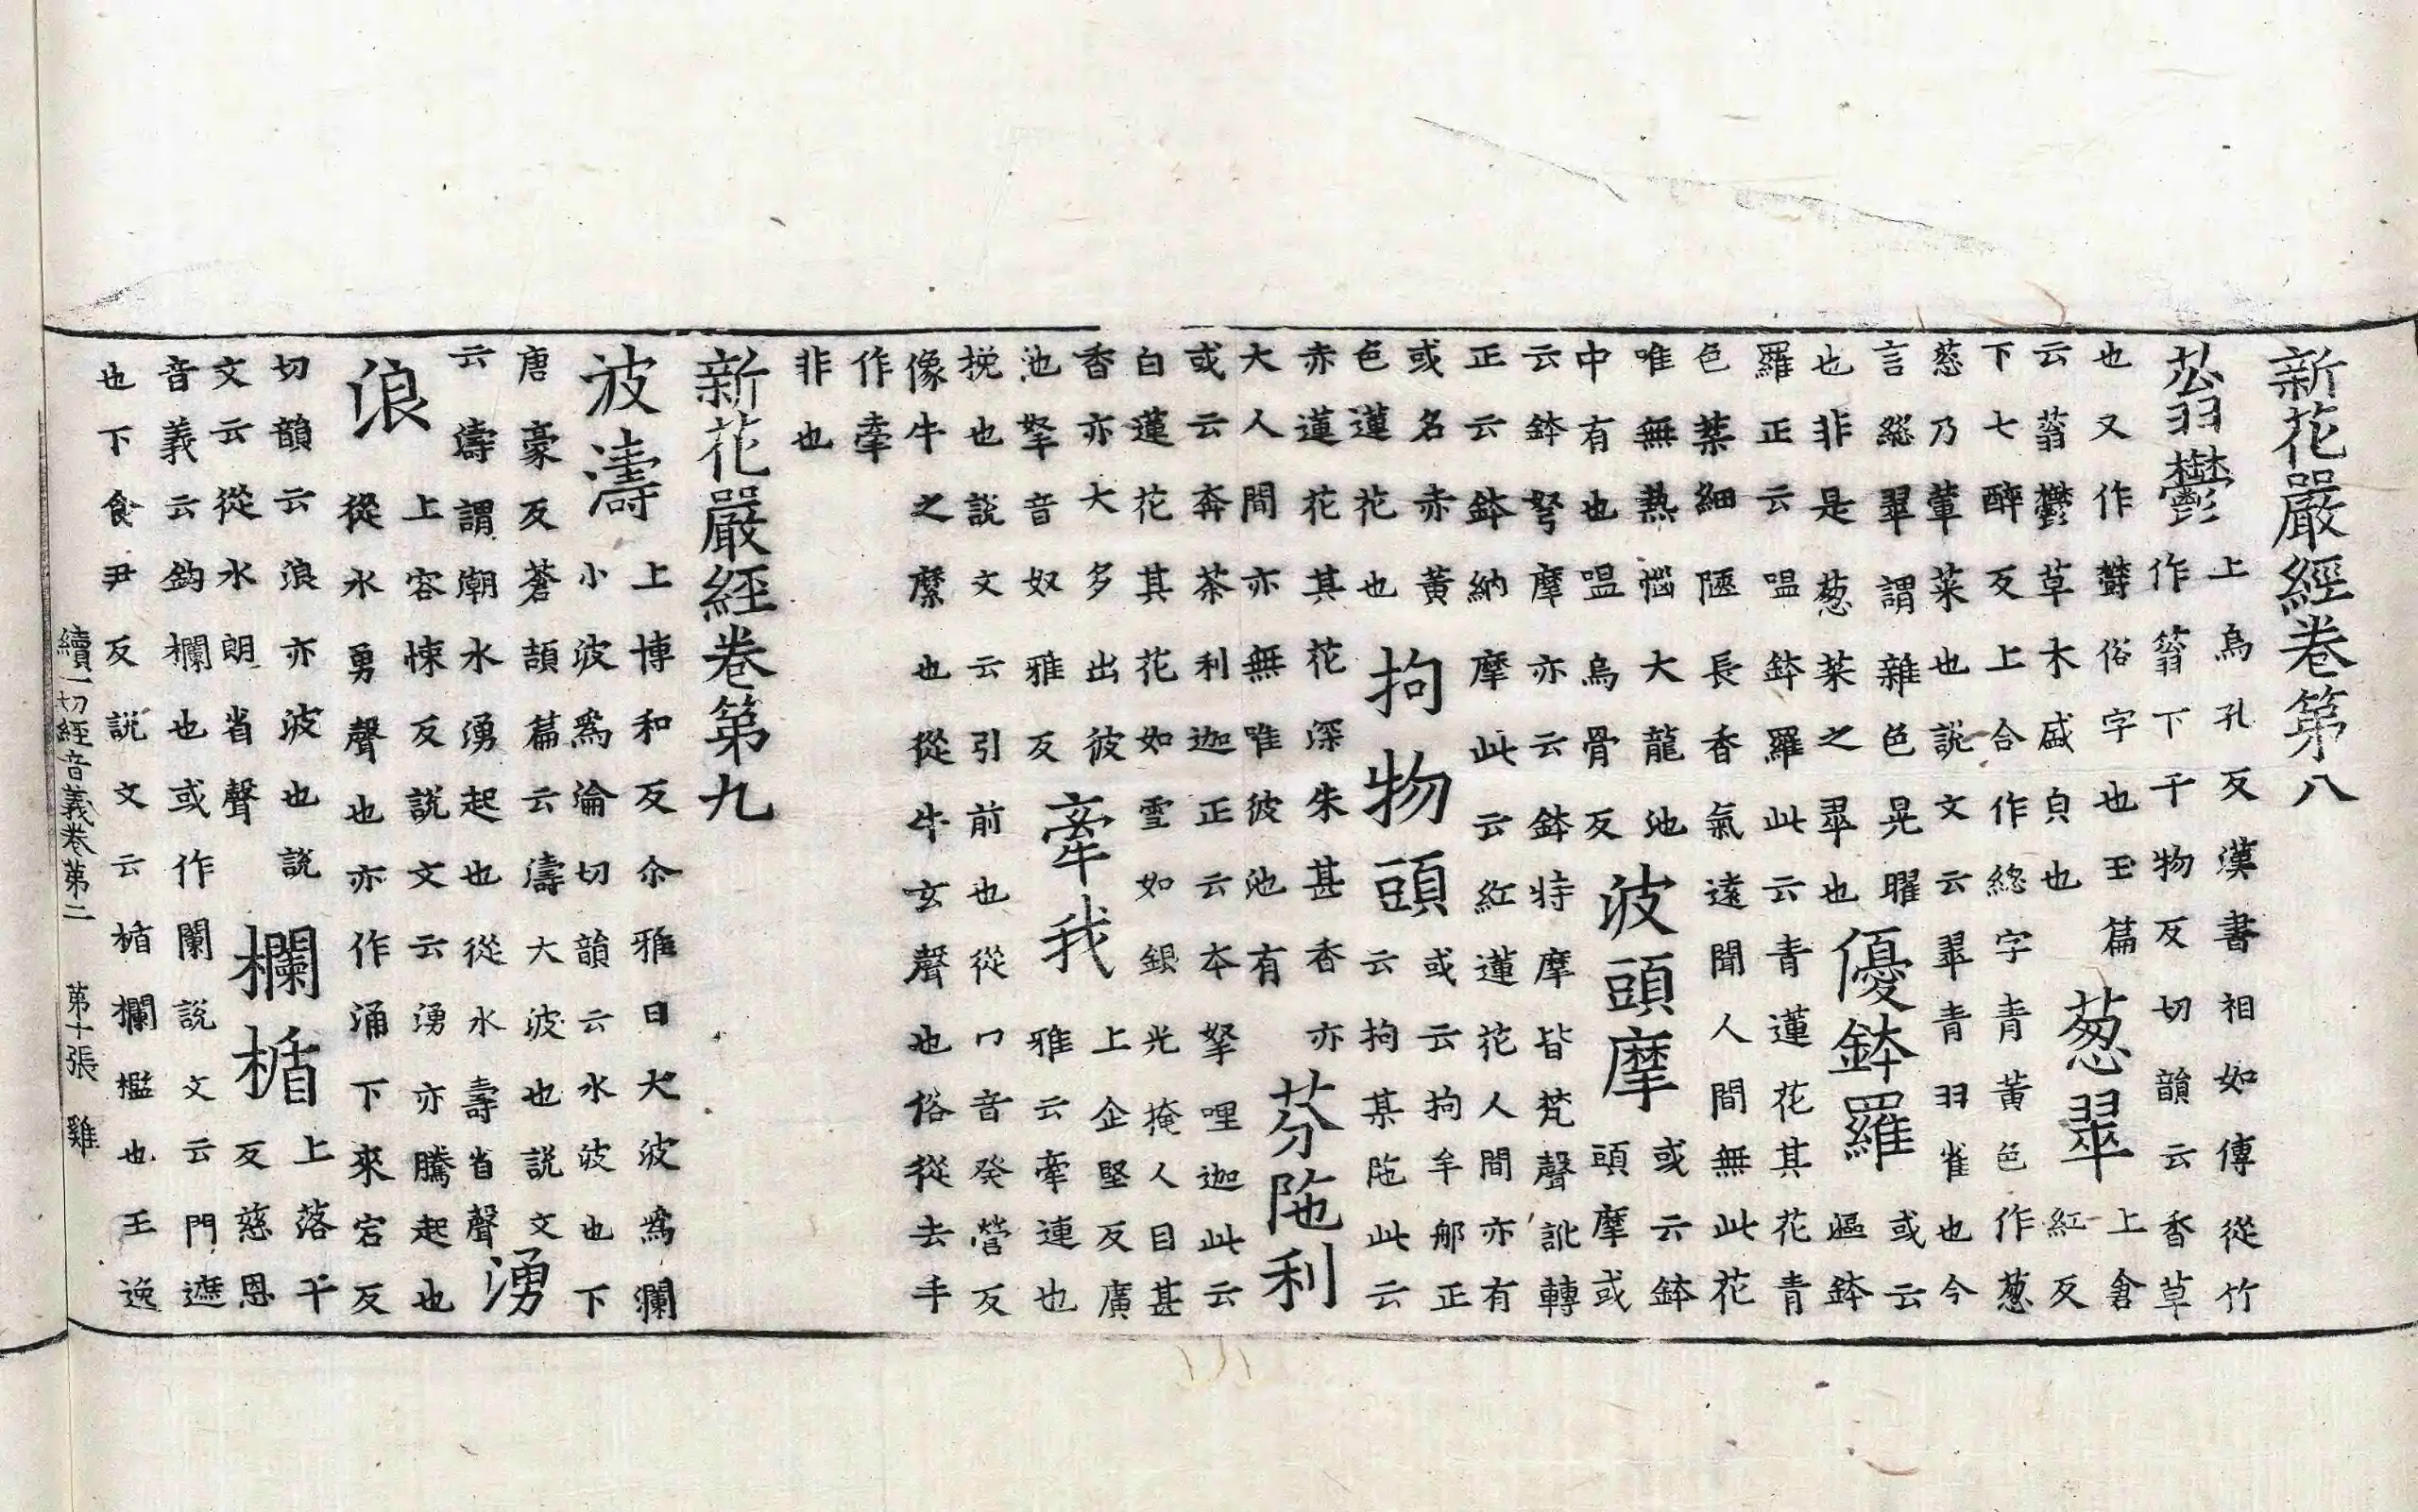 新花嚴經卷第八
蓊鬱上烏孔反漢書相如傳從竹
作䈵下干物反切韻云香草
也又作欝俗字也玉篇
云蓊鬱草木盛皃也
葱翠上倉
紅反
下七醉反上合作緫字青黃色作葱
葱乃葷菜也說文云翠青羽雀也今
言緫翠謂雜色晃曜
也非是葱菜之翠也
優鉢羅或云
漚鉢
羅正云嗢鉢羅此云青蓮花其花青
色葉細陿長香氣遠聞人間無此花
唯無熱惱大龍池
中有也嗢烏骨反
波頭摩或云鉢
頭摩或
云鉢弩摩亦云鉢特摩皆梵聲訛轉
正云鉢納摩此云紅蓮花人間亦有
或名赤黃
色蓮花也
拘物頭或云拘牟那正
云拘某陁此云
赤蓮花其花深朱甚香亦
大人間亦無唯彼池有
芬陁利
或云奔茶利迦正云本拏哩迦此云
白蓮花其花如雪如銀光掩人目甚
香亦大多出彼
池拏音奴雅反
牽我上企堅反廣
雅云牽連也
挽也說文云引前也從冂音癸營反
像牛之縻也從牛玄聲也俗從去手
作牽
非也
新花嚴經卷第九
波濤上博和反尒雅曰大波爲瀾
小波爲淪切韻云水波也下
唐豪反蒼頡篇云濤大波也說文
云濤謂潮水湧起也從水壽省聲
湧
浪上容悚反說文云湧亦騰起也
從水勇聲也亦作涌下來宕反
切韻云浪亦波也說
文云從水朗省聲
欄楯上落干
反慈恩
音義云鉤欄也或作闌說文云門遮
也下食尹反說文云楯欄檻也王逸
續一切經音義卷第二 第十張 雞